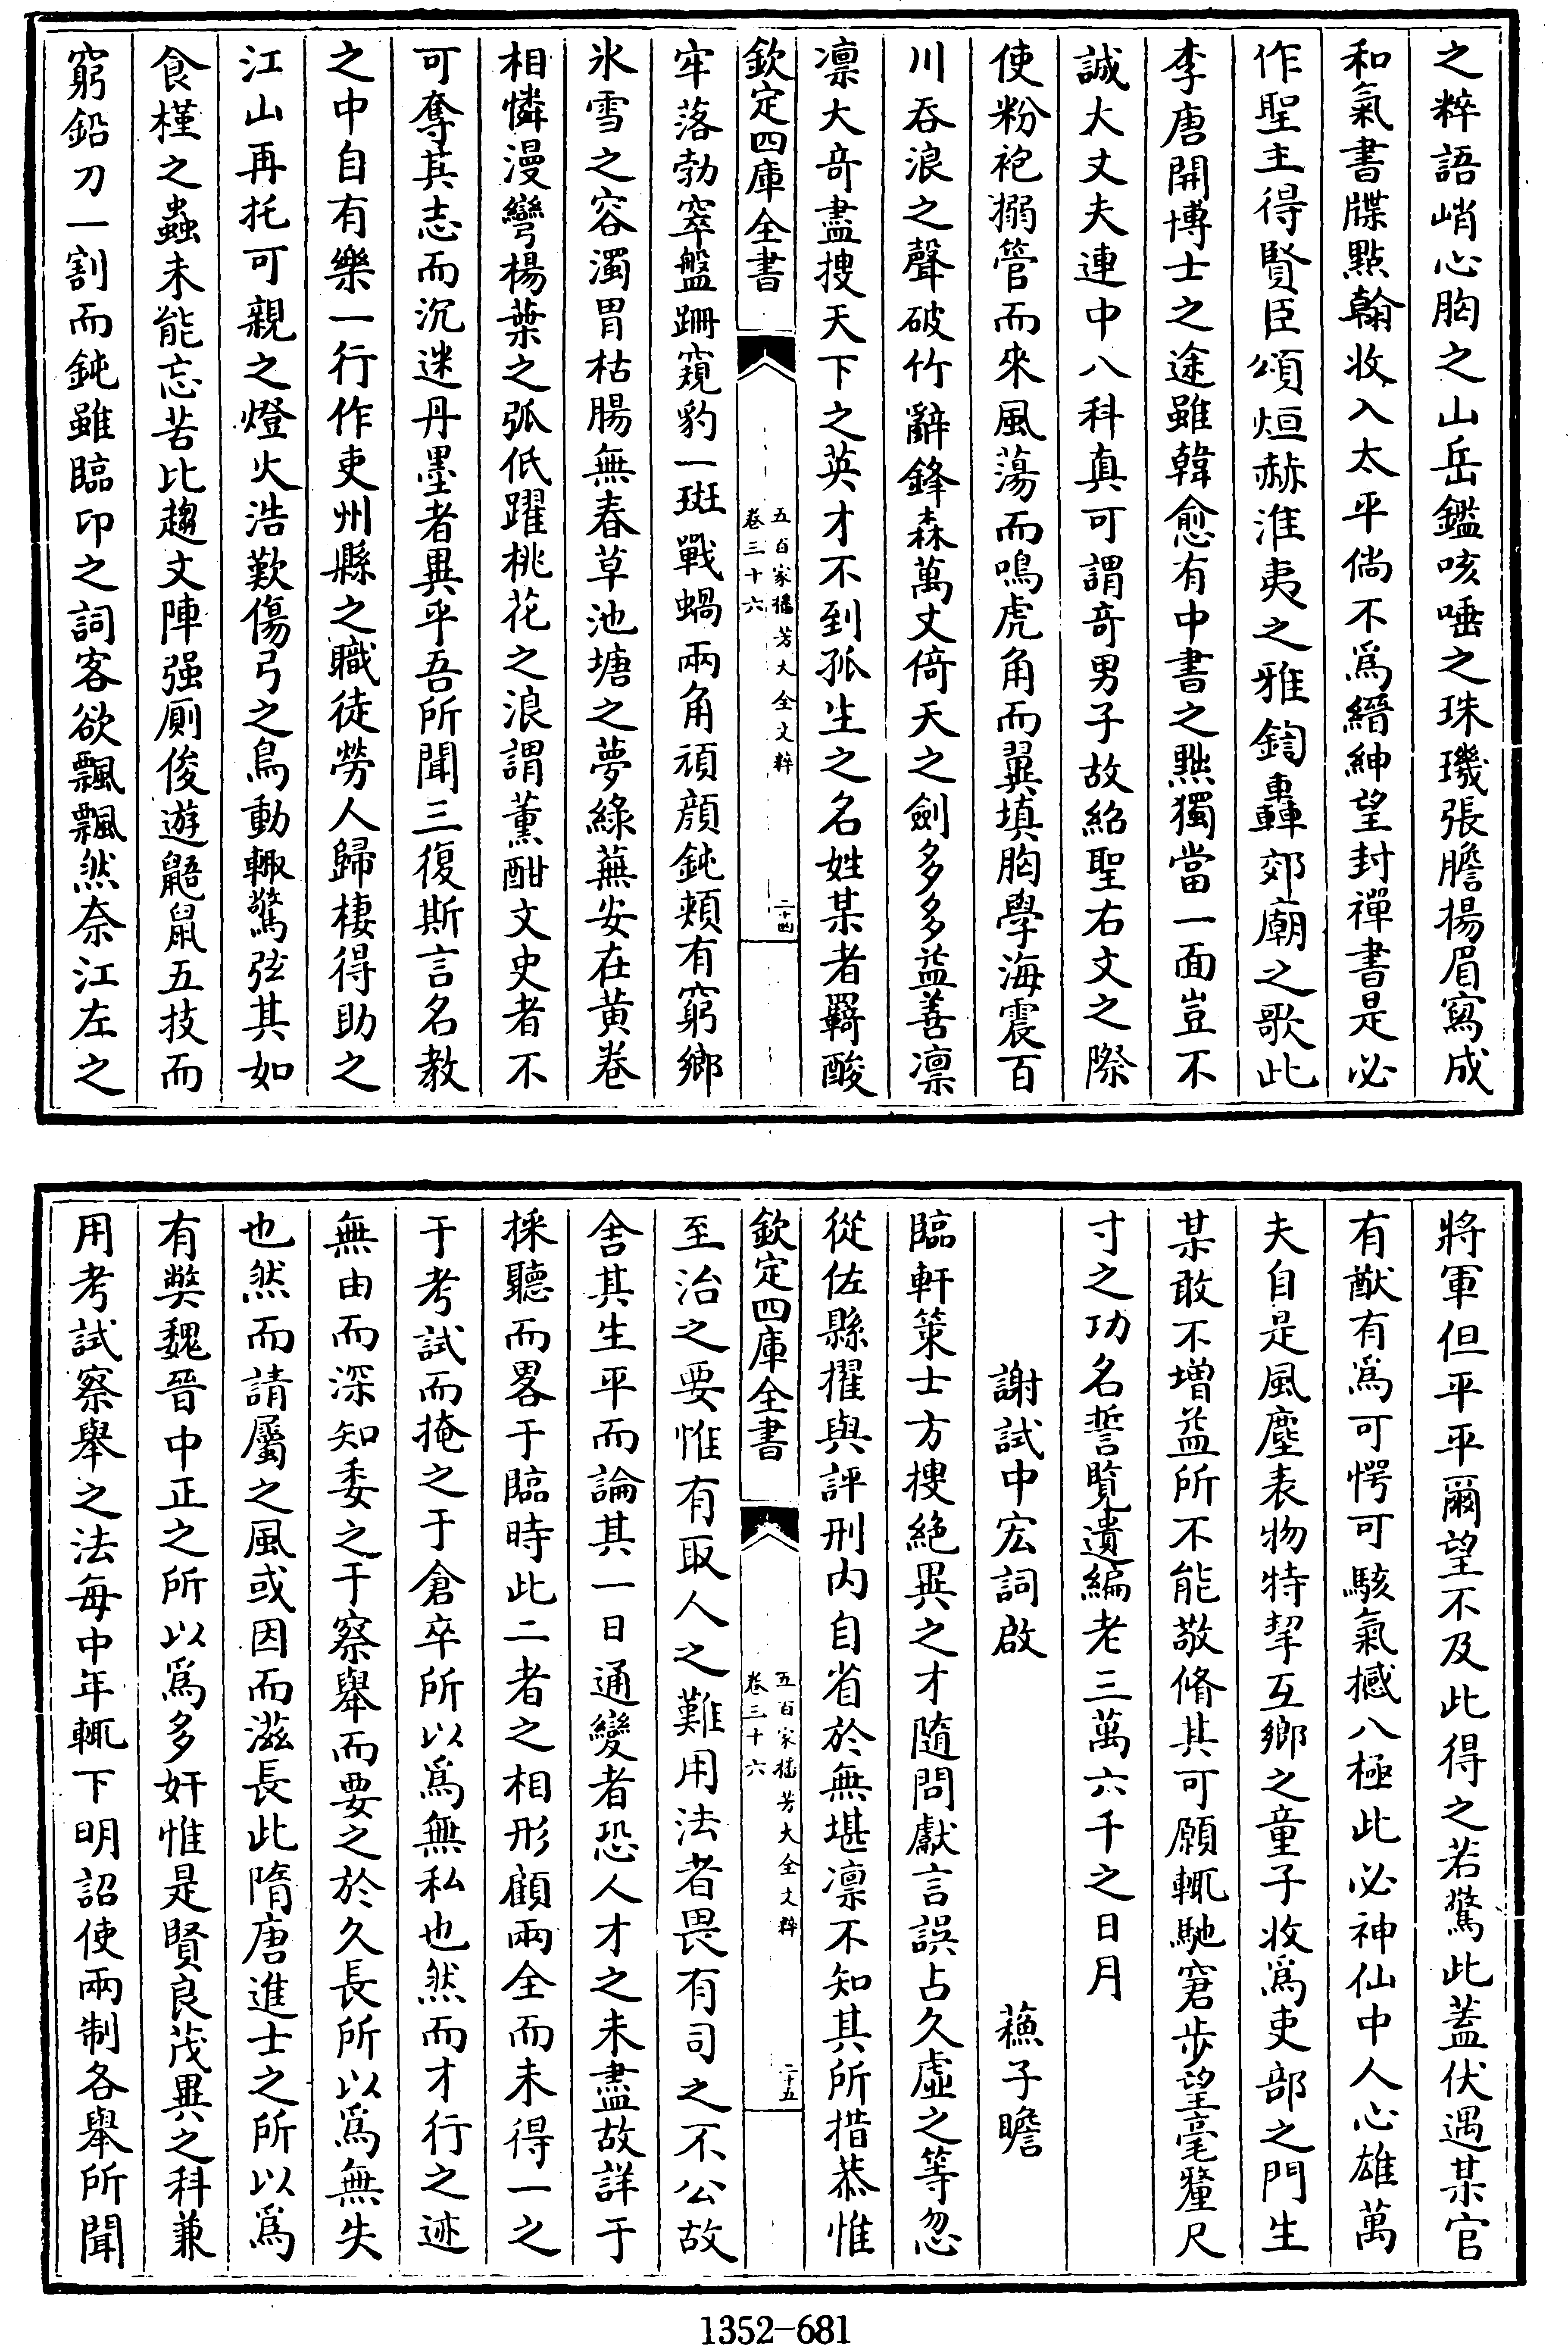 之粹語峭心胸之山岳鑑咳唾之珠璣張膽揚眉寫成
和氣書牒點翰收入太平倘不爲縉紳望封禪書是必
作聖主得賢臣頌烜赫淮夷之雅鍧轟郊廟之歌此
李唐開博士之途雖韓愈有中書之黜獨當一面豈不
誠大丈夫連中八科真可謂奇男子故紹聖右文之際
使粉袍搦管而來風蕩而鳴虎角而翼填胸學海震百
川吞浪之聲破竹辭鋒森萬丈倚天之劍多多益善凛
凛大竒盡搜天下之英才不到孤生之名姓某者羇酸
欽定四庫全書
五百家播芳大全文粹
卷三十六
二十四
牢落勃窣盤跚窺豹一斑戰蝸兩角頑顔鈍頰有窮鄉
氷雪之容濁胃枯腸無春草池塘之夢綠蕪安在黄卷
相憐漫彎楊葉之弧低躍桃花之浪謂薰酣文史者不
可奪其志而沉迷丹墨者異乎吾所聞三復斯言名教
之中自有樂一行作吏州縣之職徒勞人歸棲得助之
江山再托可親之燈火浩歎傷弓之鳥動輙驚弦其如
食槿之蟲未能忘苦比趨文陣强厠俊遊鼯鼠五技而
窮鉛刀一割而鈍雖臨卬之詞客欲飄飄然奈江左之
將軍但平平爾望不及此得之若驚此蓋伏遇某官
有猷有爲可愕可駭氣撼八極此必神仙中人心雄萬
夫自是風塵表物特挈互鄉之童子收爲吏部之門生
某敢不增益所不能敬脩其可願輒馳窘步望毫釐尺
寸之功名誓覽遺編老三萬六千之日月
謝試中宏詞啟　蘓子瞻
臨軒策士方搜絶異之才隨問獻言誤占久虛之等忽
從佐縣擢與評刑内自省於無堪凛不知其所措恭惟
欽定四庫全書
五百家播芳大全文粹
卷三十六
二十五
至治之要惟有取人之難用法者畏有司之不公故
舍其生平而論其一日通變者恐人才之未盡故詳于
採聽而畧于臨時此二者之相形顧兩全而未得一之
于考試而掩之于倉卒所以爲無私也然而才行之迹
無由而深知委之于察舉而要之於久長所以爲無失
也然而請屬之風或因而滋長此隋唐進士之所以爲
有弊魏晉中正之所以爲多奸惟是賢良茂異之科兼
用考試察舉之法每中年輒下明詔使兩制各舉所聞
1352-681